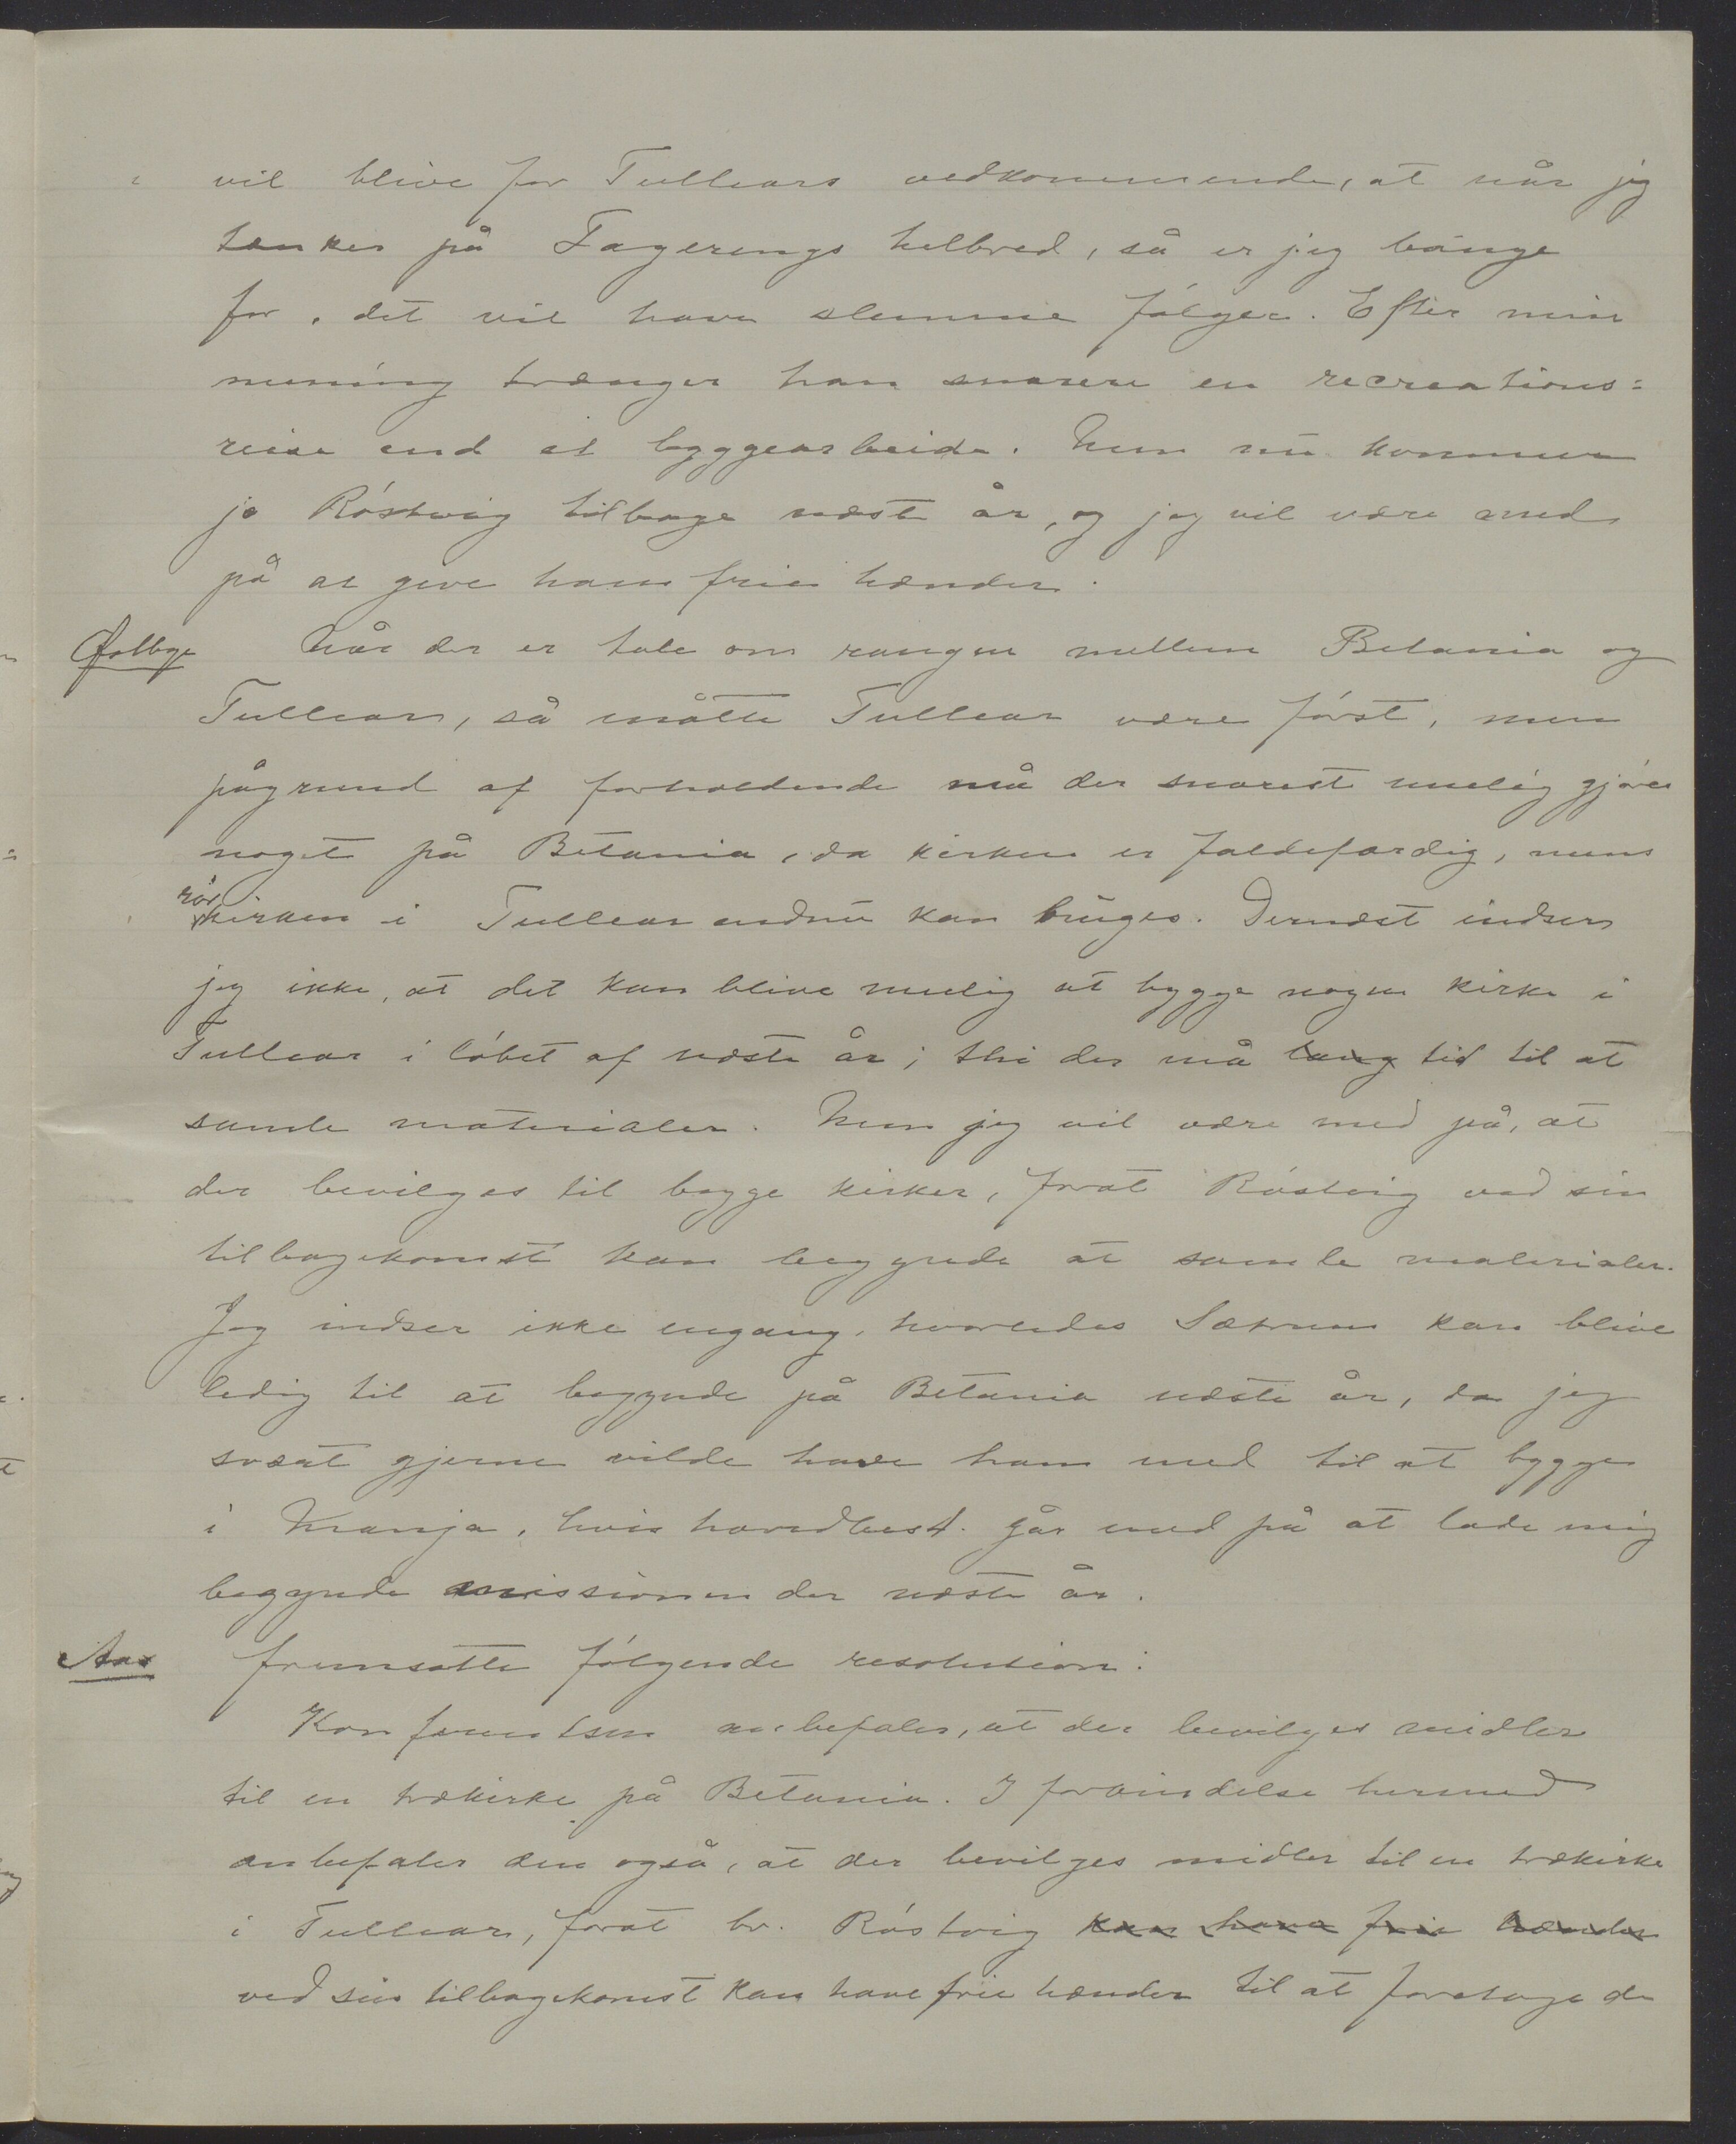 vil blive for Tullears vedkommende, at når jeg
tænker på Fagerengs helbred, så er jeg bange
for, det vil have slemme følger. Efter min
mening trænger han snarere en recreations=
reise end et byggearbeide. Men nu kommer
jo Röstvig tilbage næste år, og jeg vil være med
på at give ham frie hænder.
Når der er tale om rangen mellem Betania og
Tullear, så måtte Tullear være först, men
pågrund af forholdende må der snarest muelig gjöres
noget på Betania, da kirken er faldefærdig, mens
rörkirken i Tullear endnu kan bruges. Dernæst indser
jeg ikke, at det kan blive muelig at bygge nogen kirke i
Tullear i löbet af næste år; thi der må lang tid til at
samle materialer. Men jeg vil være med på, at
der bevilges til begge kirker, forat Röstvig ved sin
tilbagekomst kan begynde at samle materialer.
Jeg indser ikke engang, hvorledes Sætrum kan blive
ledig til at begynde på Betania næste år, da jeg
svært gjerne vilde have ham med til at bygge
i Manja, hvis hovedbest. går med på at lade mig
begynde missionen der næste år.
Aas fremsatte fölgende resolution:
Konferentsen anbefaler, at der bevilges midler
til en trækirke på Betania. I forbindelse hermed
anbefaler den også, at der bevilges midler til en trækirke
i Tullear, forat br. Röstvig kan have frie hænder
ved sin tilbagekomst kan have frie hænder til at foretage de